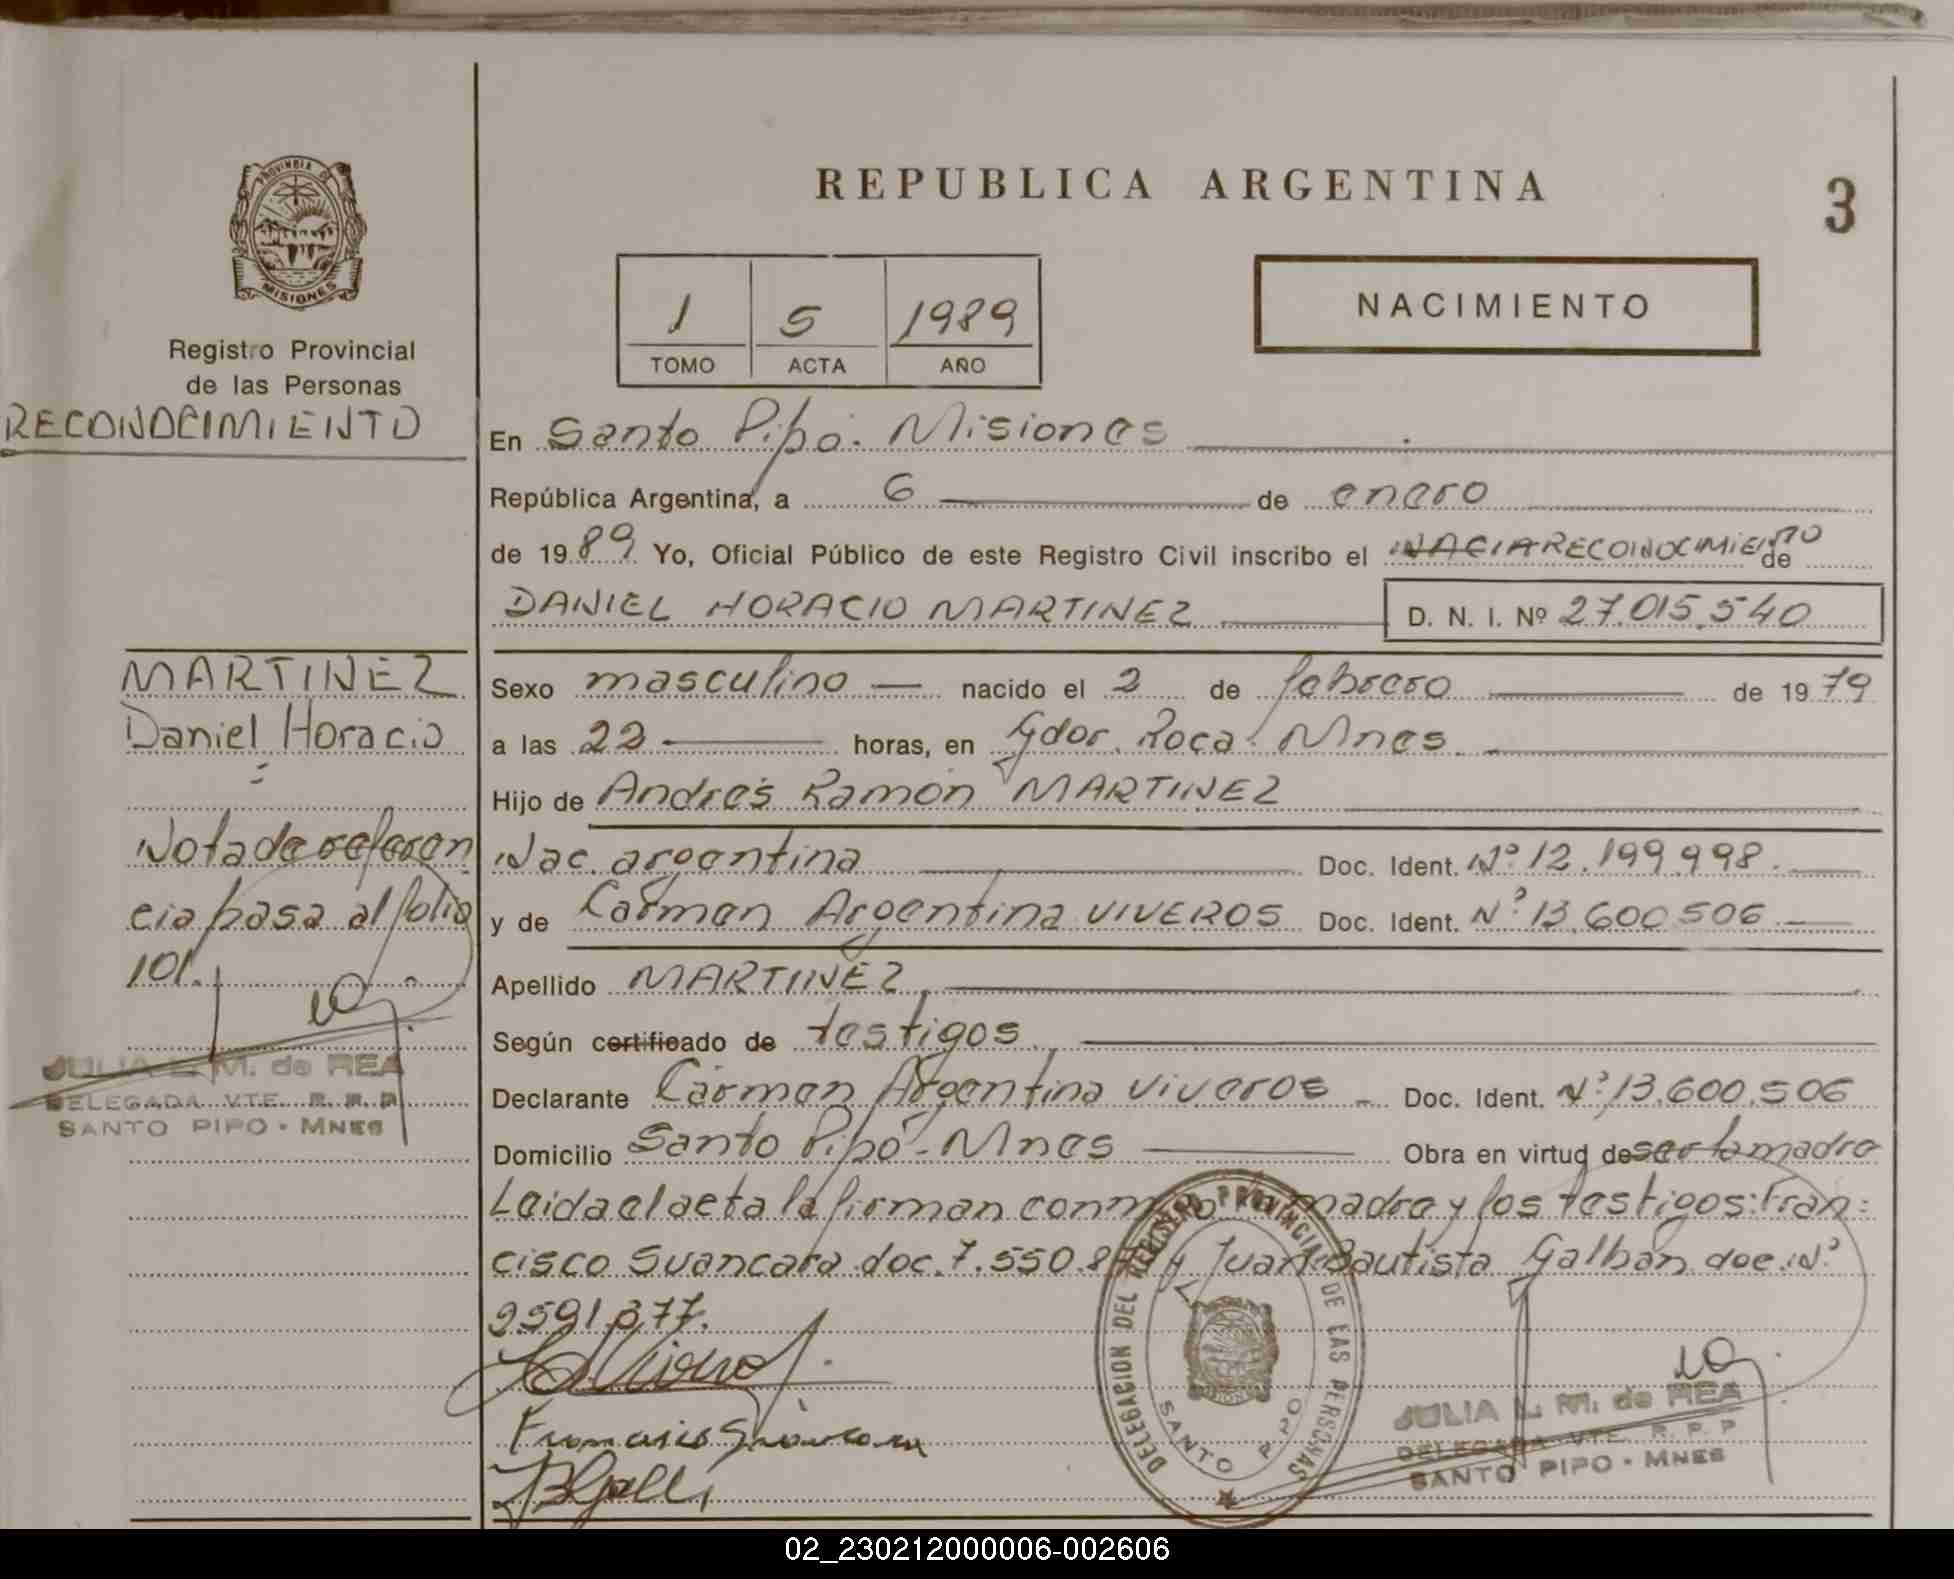 REPUBLICA ARGENTINA
3
PROVINCIA DE
MISIONES
Registro Provincial
de las Personas
RECONOCIMIENTO
1 5 1989
TOMO ACTA AÑO
NACIMIENTO
En Santo Pipó. Misiones
República Argentina, a 6 de enero
de 1989 Yo, Oficial Público de este Registro Civil inscribo el NACIA RECONOCIMIENTO de
DANIEL HORACIO MARTINEZ D. N. I. Nº 27.015.540
MARTINEZ
Daniel Horacio
Nota de referen
cia pasa al folio
101.
JULIA L. M. de REA
DELEGADA VTE. R. P. P.
SANTO PIPO - MNES
Sexo masculino nacido el 2 de febrero de 1979
a las 22 horas, en Gdor. Roca. Mnes.
Hijo de Andrés Ramón MARTINEZ
Nac. argentina Doc. Ident. Nº 12.199.998.
y de Carmen Argentina VIVEROS Doc. Ident. Nº 13.600.506
Apellido MARTINEZ
Según certificado de testigos
Declarante Carmen Argentina Viveros Doc. Ident. Nº 13.600.506
Domicilio Santo Pipó - Mnes Obra en virtud de ser la madre
Leida el acta la firman conmigo la madre y los testigos: Fran=
cisco Suancara doc. 7.550.8 y Juan Bautista Galbán doc. Nº
2591.377.
Francisco Suancara
DELEGACION DEL REGISTRO PROVINCIAL DE LAS PERSONAS
SANTO PIPO
JULIA L. M. de REA
DELEGADA VTE. R. P. P
SANTO PIPO - MNES
02_230212000006-002606